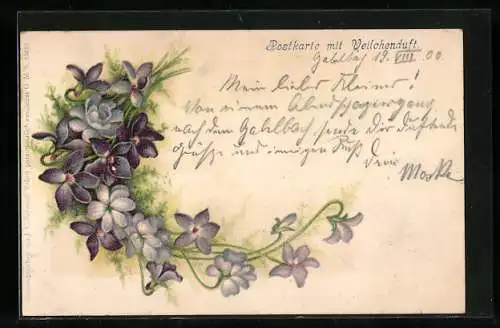 Postkarte mit Veilchenduft.
Gabelbach 19. VIII 00.
Mein lieber Kleiner!
Von einem Abendspaziergang
nach dem Gabelbach sende dir duftende
Grüsse und innigen Kuß
dein